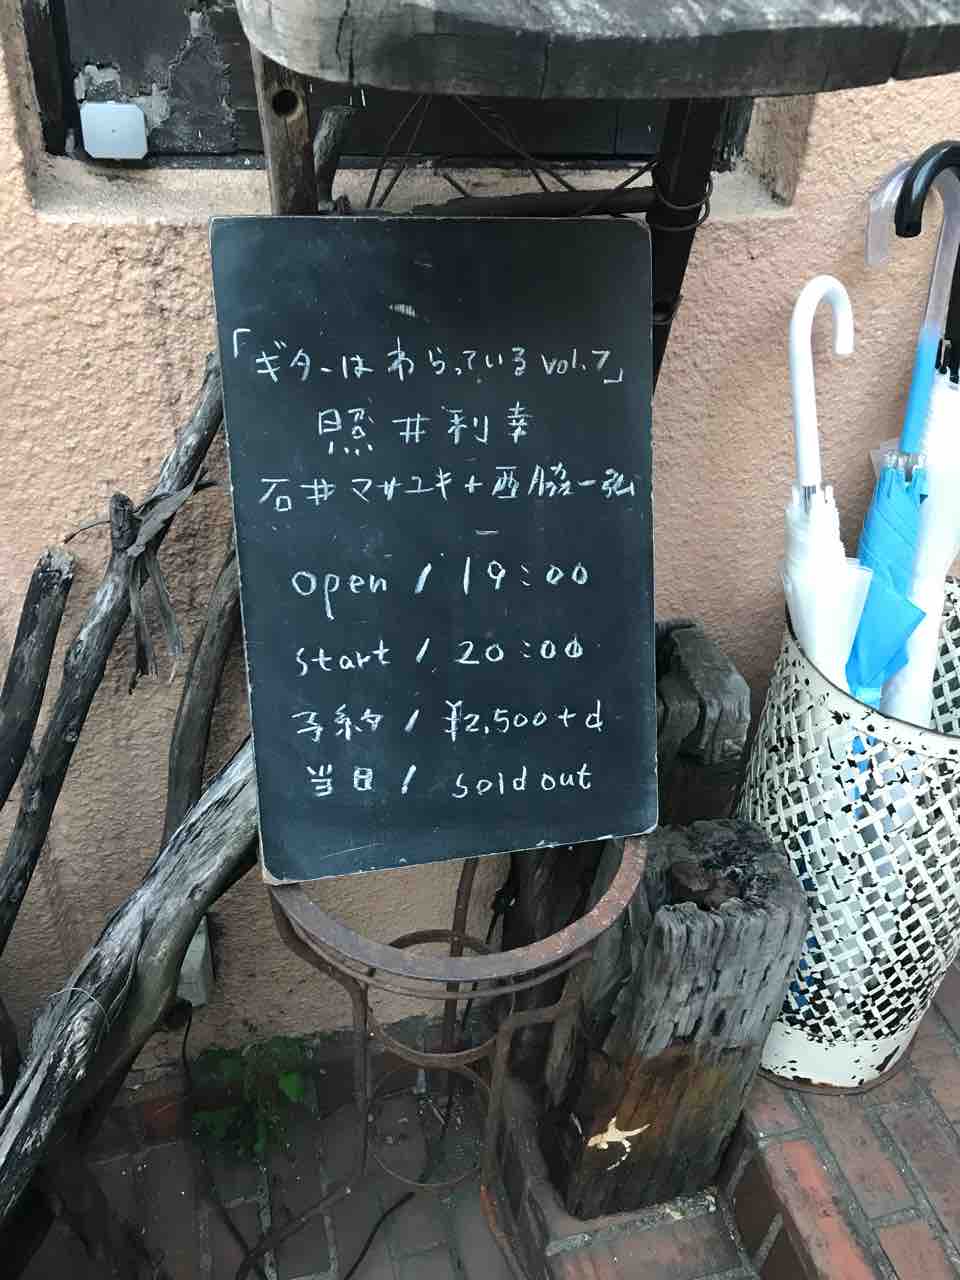 「ギターはわらっている vol.7」
照井利幸
石井マサユキ+西脇一弘
open / 19:00
start / 20:00
予約 / ¥2,500+d
当日 / sold out